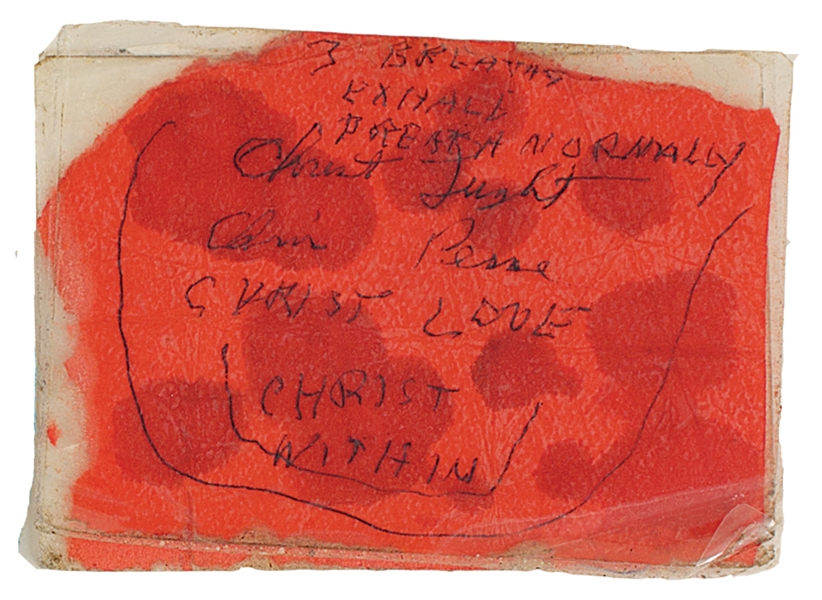 3 BREATHS
EXHALE
BREATH NORMALLY
Christ Light
Chris Peace
CHRIST LOVE
CHRIST
WITHIN